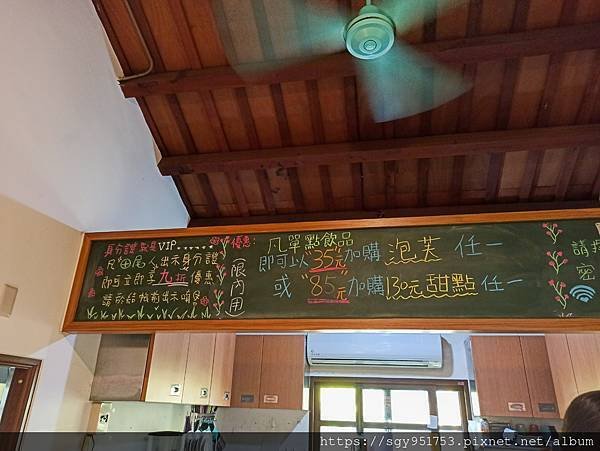 身分證就是VIP......
凡"田尾"人出示身分證
即可立即享九折優惠
請於結帳前出示唷
(限內用)
優惠:
凡單點飲品
即可以"35元"加購泡芙任一
或"85元"加購130元甜點任一
請
密
https://sgy951753.pixnet.net/album